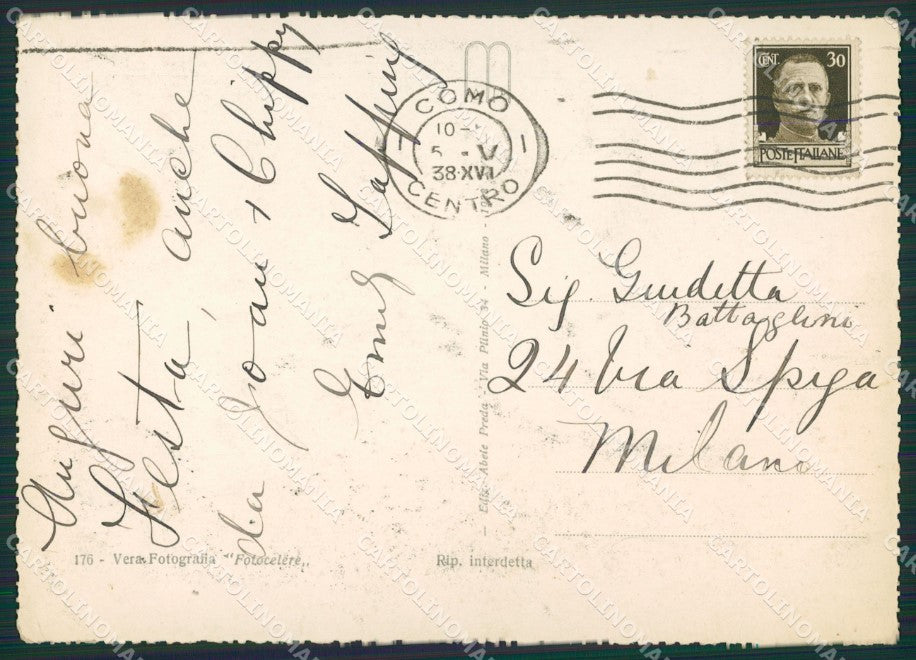 Auguri buona
Festa, anche
da Joan + Chippy
COMO
10-
5 - V
38·XVI
CENTRO
CENT. 30
POSTE ITALIANE
Sig. Giudetta
Battaglini
24 Via Spiga
Milano
Ediz. Abele Preda - Via Plinio 34 - Milano -
176 - Vera Fotografia "Fotocelere„
Rip. interdetta
CARTOLINOMANIA